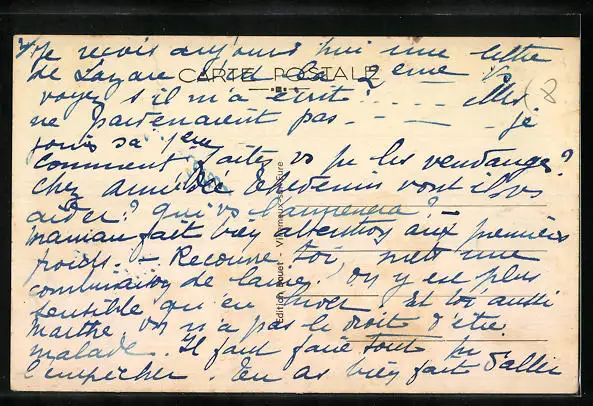 3/ Je reçois aujourd'hui une lettre
de Lazare c'est la 2ème vs
CARTE POSTALE
voyez s'il m'a écrit! . . . . Mes
ne parvenaient pas - - - je
sa 1ère
Comment faites vs pr les vendanges?
chez vont ils vs
aider? qui vs
maman fait bien attention aux premiers
froids. - Recouvre toi, mets une
combinaison de laine. On y est plus
sensible qu'en Et toi aussi
Marthe, on n'a pas le droit d'être
malade. Il faut faire tout pr
l'empêcher. Tu as bien fait d'aller
Edition Rouet - Villeneuve-sur-Eure
8